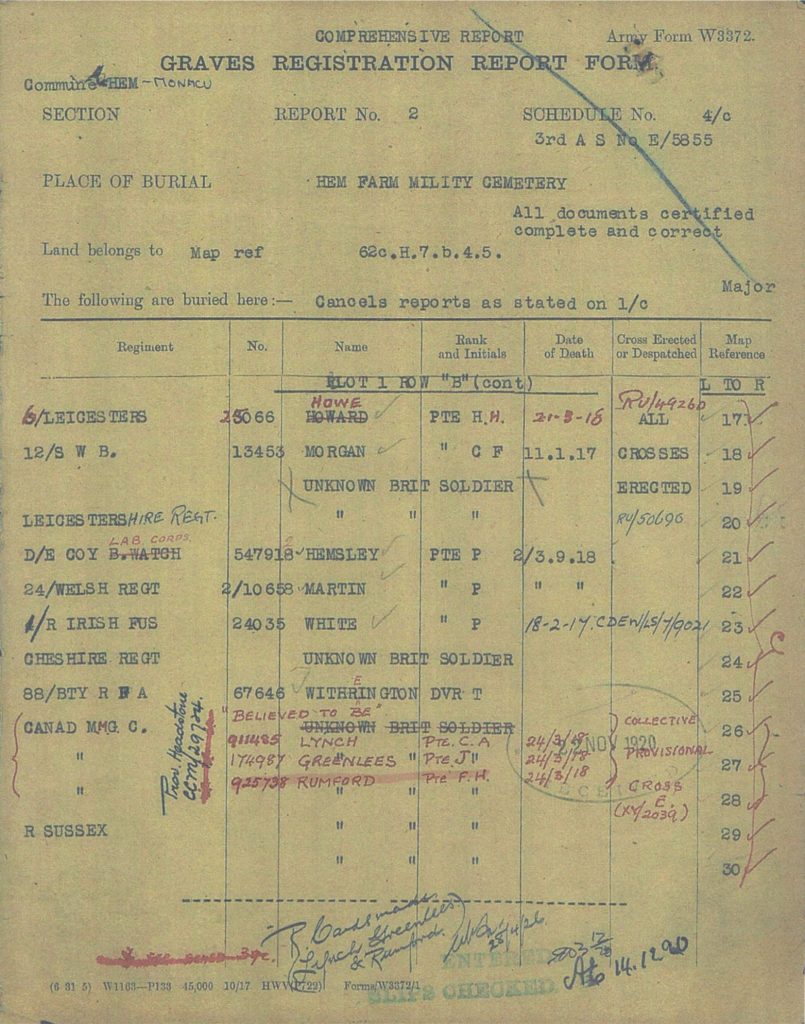 COMPREHENSIVE REPORT Army Form W3372.
GRAVES REGISTRATION REPORT FORM.
Commune HEM-MONACU
SECTION REPORT No. 2 SCHEDULE No. 4/c
3rd A S No E/5855
PLACE OF BURIAL HEM FARM MILITY CEMETERY
All documents certified
complete and correct
Land belongs to Map ref 62c.H.7.b.4.5.
Major
The following are buried here:— Cancels reports as stated on 1/c
Regiment No. Name Rank and Initials Date of Death Cross Erected or Despatched Map Reference
PLOT 1 ROW "B"(cont) L TO R
HOWE RU/49260
6/LEICESTERS 25066 HOWARD PTE H.H. 21-3-18 ALL 17
12/S W B. 13453 MORGAN " C F 11.1.17 CROSSES 18
UNKNOWN BRIT SOLDIER ERECTED 19
LEICESTERSHIRE REGT. " " " RU/50690 20
LAB. CORPS.
D/E COY B.WATCH 547918 HEMSLEY PTE P 2/3.9.18 21
24/WELSH REGT 2/10658 MARTIN " P " " 22
1/R IRISH FUS 24035 WHITE " P 18-2-17. CDEW/LS/7/9021 23
CHESHIRE REGT UNKNOWN BRIT SOLDIER 24
88/BTY R F A 67646 WITHRINGTON DVR T 25
E
"BELIEVED TO BE" COLLECTIVE
CANAD MMG C. UNKNOWN BRIT SOLDIER 26
911485 LYNCH Pte. C.A 24/3/18 PROVISIONAL
" 174987 GREENLEES " Pte J " 24/3/18 27
" 925738 RUMFORD " Pte F.H. 24/3/18 CROSS 28
E.
(XY/2039)
NOV 1920
Prov. Headstone
CCM/29724.
R SUSSEX " " " 29
" " " 30
R Cards made
(Lynch Greenlees
& Rumford.
28/4/26
ENTERED
14.12.20
SLIPS CHECKED.
(6 31 5) W1163—P133 45,000 10/17 HWV(P722) Forms/W3372/1